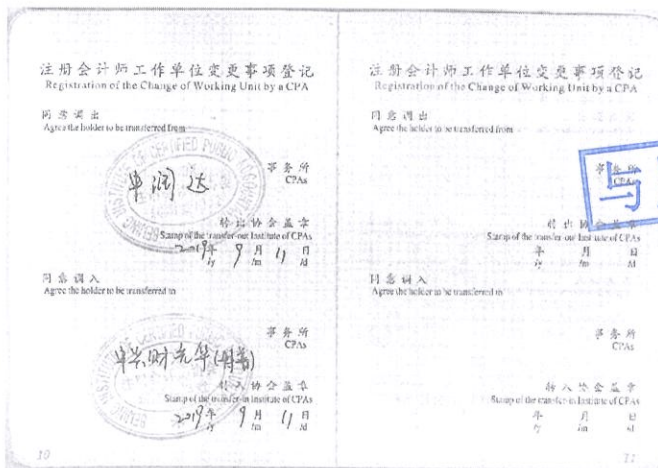 注册会计师工作单位变更事项登记
Registration of the Change of Working Unit by a CPA
同意调出
Agree the holder to be transferred from
事务所
CPAs
转出协会盖章
Stamp of the transfer-out Institute of CPAs
2019年 9月 11日
/y /m /d
同意调入
Agree the holder to be transferred to
事务所
CPAs
转入协会盖章
Stamp of the transfer-in Institute of CPAs
2019年 9月 11日
/y /m /d
10
注册会计师工作单位变更事项登记
Registration of the Change of Working Unit by a CPA
同意调出
Agree the holder to be transferred from
事务所
CPAs
与
转出协会盖章
Stamp of the transfer-out Institute of CPAs
年 月 日
/y /m /d
同意调入
Agree the holder to be transferred to
事务所
CPAs
转入协会盖章
Stamp of the transfer-in Institute of CPAs
年 月 日
/y /m /d
11